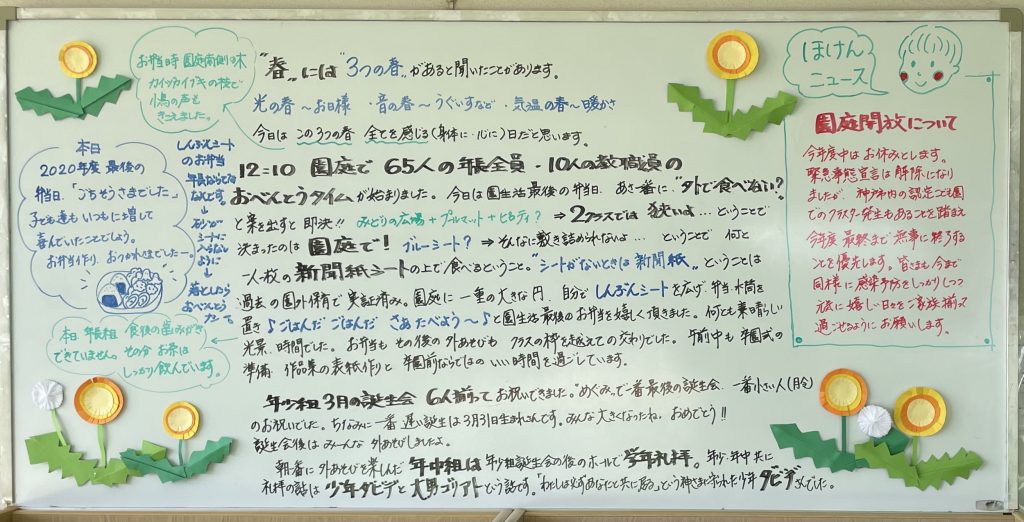 お弁当時 園庭南側の木
カイヅカイブキの枝で
小鳥の声も
きこえました。
"春"には"3つの春"があると聞いたことがあります。
光の春〜お日様 ・音の春〜うぐいすなど ・気温の春〜暖かさ
今日は この3つの春 全てを感じる(身体に・心に)日だと思います。
12:10 園庭で 65人の年長全員・10人の教職員の
おべんとうタイムが始まりました。今日は園生活最後の弁当日。あさ一番に"外で食べない?"
と案を出すと即決!! みどりの広場+ブルーマット+ピロティ? ⇒ 2クラスでは 狭いよ…ということで
決まったのは 園庭で! ブルーシート? ⇒ そんなに敷き詰められないよ… ということで 何と
一人一枚の新聞紙シートの上で食べるということ。"シートがないときは新聞紙"ということは
過去の園外保育で実証済み。園庭に一重の大きな円、自分でしんぶんシートを広げ、弁当・水筒を
置き♪ごはんだ ごはんだ さあたべよう〜♪と園生活最後のお弁当を嬉しく頂きました。何とも素晴らしい
光景、時間でした。お弁当も その後の外あそびも クラスの枠を越えての交わりでした。午前中も 卒園式の
準備 作品集の表紙作りと 卒園前ならではの いい時間を過ごしています。
年少組 3月の誕生会 6人揃って お祝いできました。"めぐみ"で一番最後の誕生会、一番小さい人(月令)
のお祝いでした。ちなみに一番遅い誕生は3月31日生まれさんです。みんな大きくなったね。おめでとう!!
誕生会後は みーんな 外あそびしましたよ。
朝一番に 外あそびを楽しんだ 年中組は 年少組誕生会の後のホールで学年礼拝。年少・年中共に
礼拝の話は 少年ダビデと大男ゴリアトという話です。"わたしは必ずあなたと共に居る"という神さまに守られた少年ダビデさんでした。
本日
2020年度 最後の
弁当日、「ごちそうさまでした」
子ども達もいつもに増して
喜んでいたことでしょう。
お弁当作り、おつかれさまでしたー。
しんぶんシート
のお弁当
年長ならでは
なんです。
↓
シートに
入らない
ように
↓
落としたら
おべんとう
本日 年長組 食後の歯みがき
できていません。その分 お茶は
しっかり飲んでいます。
ほけん
ニュース
園庭開放について
今年度中はお休みとします。
緊急事態宣言は解除になり
ましたが、神戸市内の認定こども園
でのクラスター発生もあることを踏まえ
今年度 最終まで 無事に終了する
ことを優先します。皆さまも今まで
同様に 感染予防をしっかりしつつ
嬉しい日々をご家族揃って
過ごせるようにお願いします。